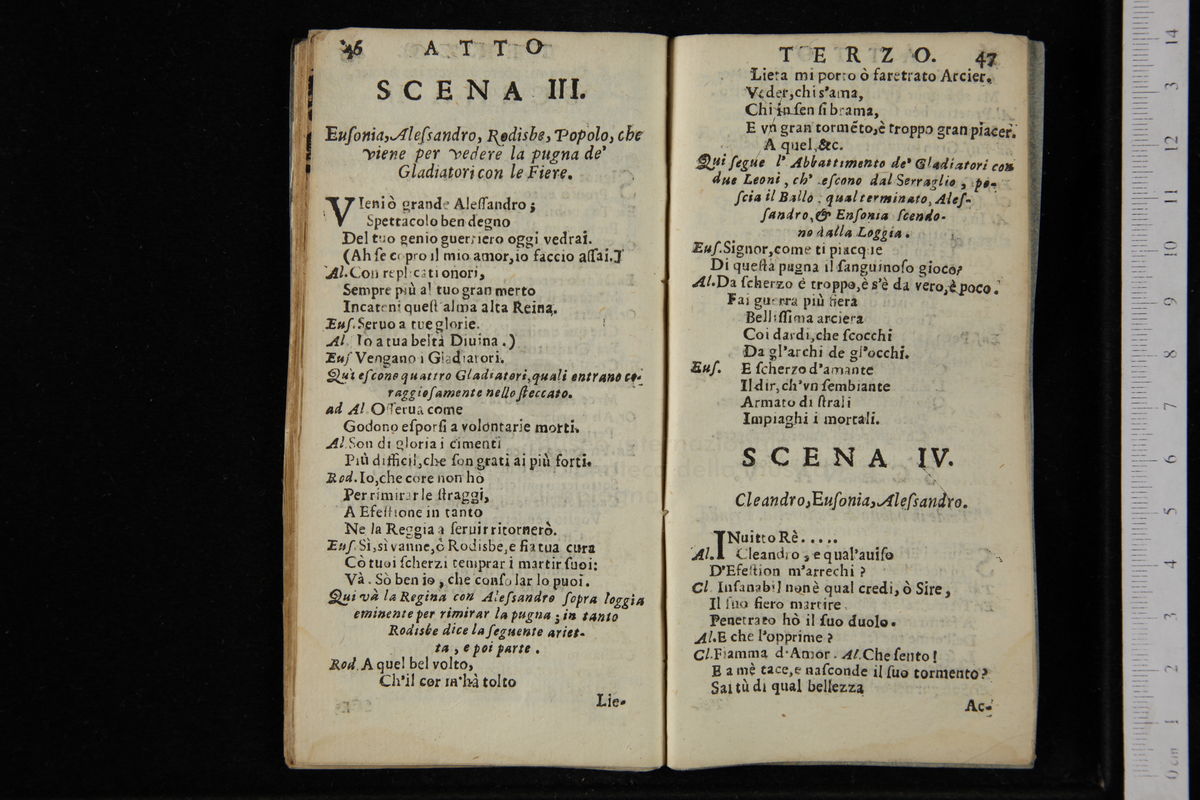 46 ATTO
SCENA III.
Euſonia, Aleſsandro, Rodisbe, Popolo, che
viene per vedere la pugna de'
Gladiatori con le Fiere.
VIeni ò grande Aleſſandro;
Spettacolo ben degno
Del tuo genio guerriero oggi vedrai.
(Ah ſe copro il mio amor, io faccio aſſai.)
Al. Con replicati onori,
Sempre più al tuo gran merto
Incateni queſt'alma alta Reina.
Euſ. Seruo a tue glorie.
Al. Io a tua beltà Diuina.)
Euſ Vengano i Gladiatori.
Quì eſcono quattro Gladiatori, quali entrano co-
raggioſamente nello ſteccato.
ad Al. Oſſerua come
Godono eſporſi a volontarie morti.
Al. Son di gloria i cimenti
Più difficil, che ſon grati ai più forti.
Rod. Io, che core non hò
Per rimirar le ſtraggi,
A Efeſtione in tanto
Ne la Reggia a ſeruir ritornerò.
Euſ. Sì, sì vanne, ò Rodisbe, e ſia tua cura
Cò tuoi ſcherzi temprar i martir ſuoi:
Và. Sò ben io, che conſolar lo puoi.
Quì và la Regina con Aleſsandro ſopra loggia
eminente per rimirar la pugna; in tanto
Rodisbe dice la ſeguente ariet-
ta, e poi parte.
Rod. A quel bel volto,
Ch'il cor m'hà tolto
Lie-
TERZO. 47
Lieta mi porto ò faretrato Arcier.
Veder, chi s'ama,
Chi in ſen ſi brama,
E vn gran tormẽto, è troppo gran piacer.
A quel, &c.
Quì ſegue l' Abbattimento de' Gladiatori con
due Leoni, ch' eſcono dal Serraglio, po-
ſcia il Ballo, qual terminato, Aleſ-
ſandro, & Enſonia ſcendo-
no dalla Loggia.
Euſ. Signor, come ti piacque
Di queſta pugna il ſanguinoſo gioco?
Al. Da ſcherzo è troppo, è s'è da vero, è poco.
Fai guerra più fiera
Belliſſima arciera
Coi dardi, che ſcocchi
Da gl'archi de gl'occhi.
Euſ. E ſcherzo d'amante
Il dir, ch'vn ſembiante
Armato di ſtrali
Impiaghi i mortali.
SCENA IV.
Cleandro, Euſonia, Aleſsandro.
INuitto Rè.....
Al. Cleandro, e qual'auiſo
D'Efeſtion m'arrechi?
Cl. Inſanabil non è qual credi, ò Sire,
Il ſuo fiero martire.
Penetrato hò il ſuo duolo.
Al. E che l'opprime?
Cl. Fiamma d'Amor. Al. Che ſento!
E a mè tace, e naſconde il ſuo tormento?
Sai tù di qual bellezza
Ac-